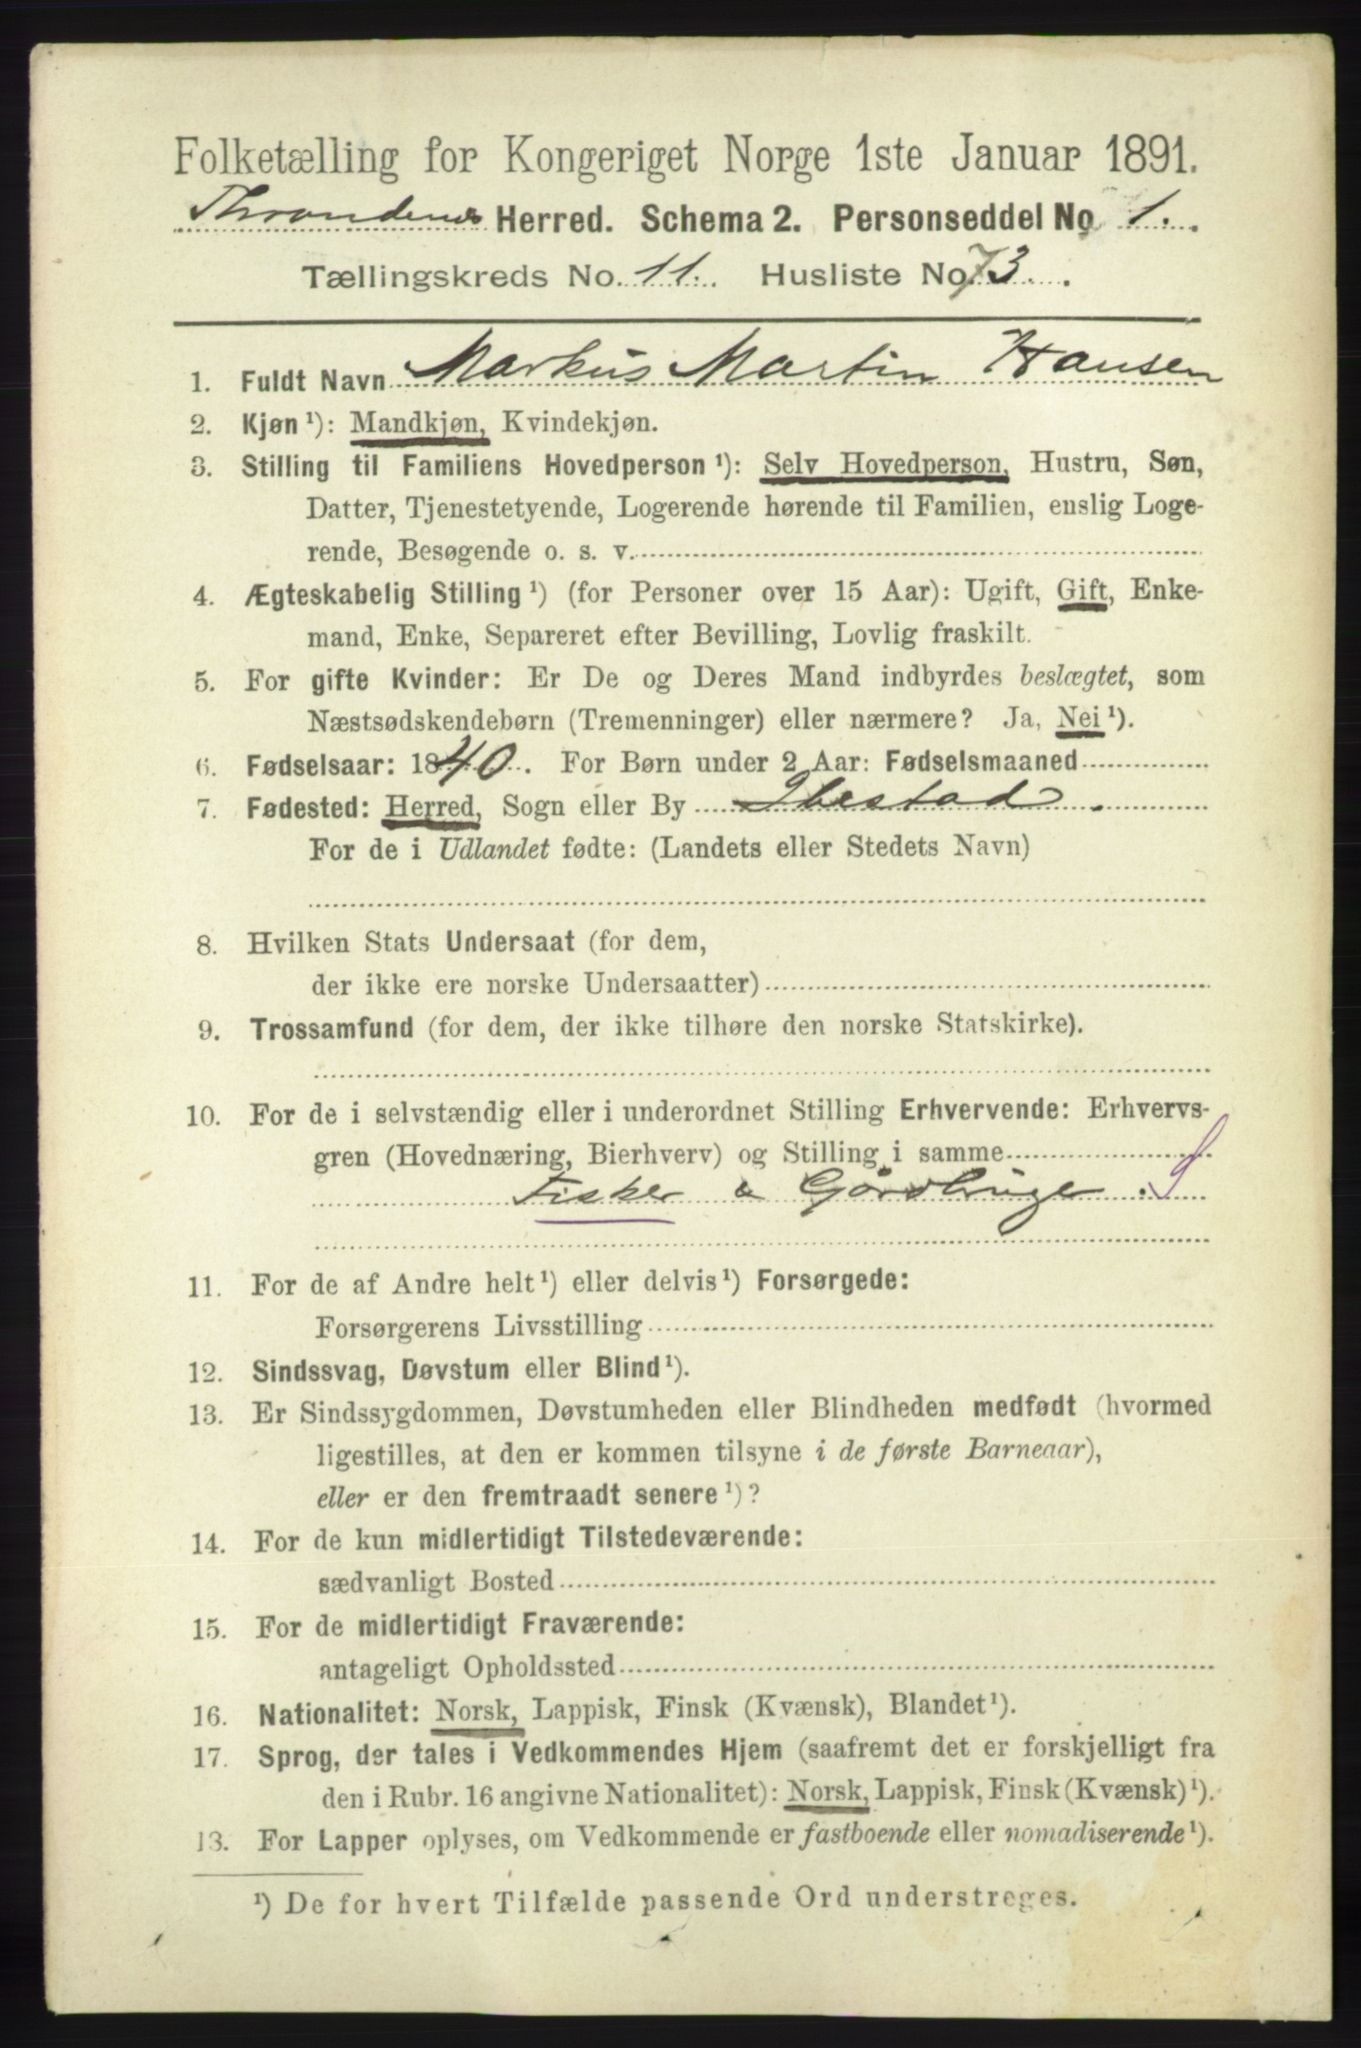 Folketælling for Kongeriget Norge 1ste Januar 1891.
Throndenes Herred. Schema 2. Personseddel No 1.
Tællingskreds No. 11. Husliste No 73.
1. Fuldt Navn Markus Martin Hansen
2. Kjøn ¹): Mandkjøn, Kvindekjøn.
3. Stilling til Familiens Hovedperson ¹): Selv Hovedperson, Hustru, Søn,
Datter, Tjenestetyende, Logerende hørende til Familien, enslig Loge-
rende, Besøgende o. s. v.
4. Ægteskabelig Stilling ¹) (for Personer over 15 Aar): Ugift, Gift, Enke-
mand, Enke, Separeret efter Bevilling, Lovlig fraskilt.
5. For gifte Kvinder: Er De og Deres Mand indbyrdes beslægtet, som
Næstsødskendebørn (Tremenninger) eller nærmere? Ja, Nei ¹).
6. Fødselsaar: 1840. For Børn under 2 Aar: Fødselsmaaned
7. Fødested: Herred, Sogn eller By Ibestad.
For de i Udlandet fødte: (Landets eller Stedets Navn)
8. Hvilken Stats Undersaat (for dem,
der ikke ere norske Undersaatter)
9. Trossamfund (for dem, der ikke tilhøre den norske Statskirke).
10. For de i selvstændig eller i underordnet Stilling Erhvervende: Erhvervs-
gren (Hovednæring, Bierhverv) og Stilling i samme
Fisker & Gårdbruge. S
11. For de af Andre helt ¹) eller delvis ¹) Forsørgede:
Forsørgerens Livsstilling
12. Sindssvag, Døvstum eller Blind ¹).
13. Er Sindssygdommen, Døvstumheden eller Blindheden medfødt (hvormed
ligestilles, at den er kommen tilsyne i de første Barneaar),
eller er den fremtraadt senere ¹)?
14. For de kun midlertidigt Tilstedeværende:
sædvanligt Bosted
15. For de midlertidigt Fraværende:
antageligt Opholdssted
16. Nationalitet: Norsk, Lappisk, Finsk (Kvænsk), Blandet ¹).
17. Sprog, der tales i Vedkommendes Hjem (saafremt det er forskjelligt fra
den i Rubr. 16 angivne Nationalitet): Norsk, Lappisk, Finsk (Kvænsk) ¹).
13. For Lapper oplyses, om Vedkommende er fastboende eller nomadiserende ¹).
¹) De for hvert Tilfælde passende Ord understreges.